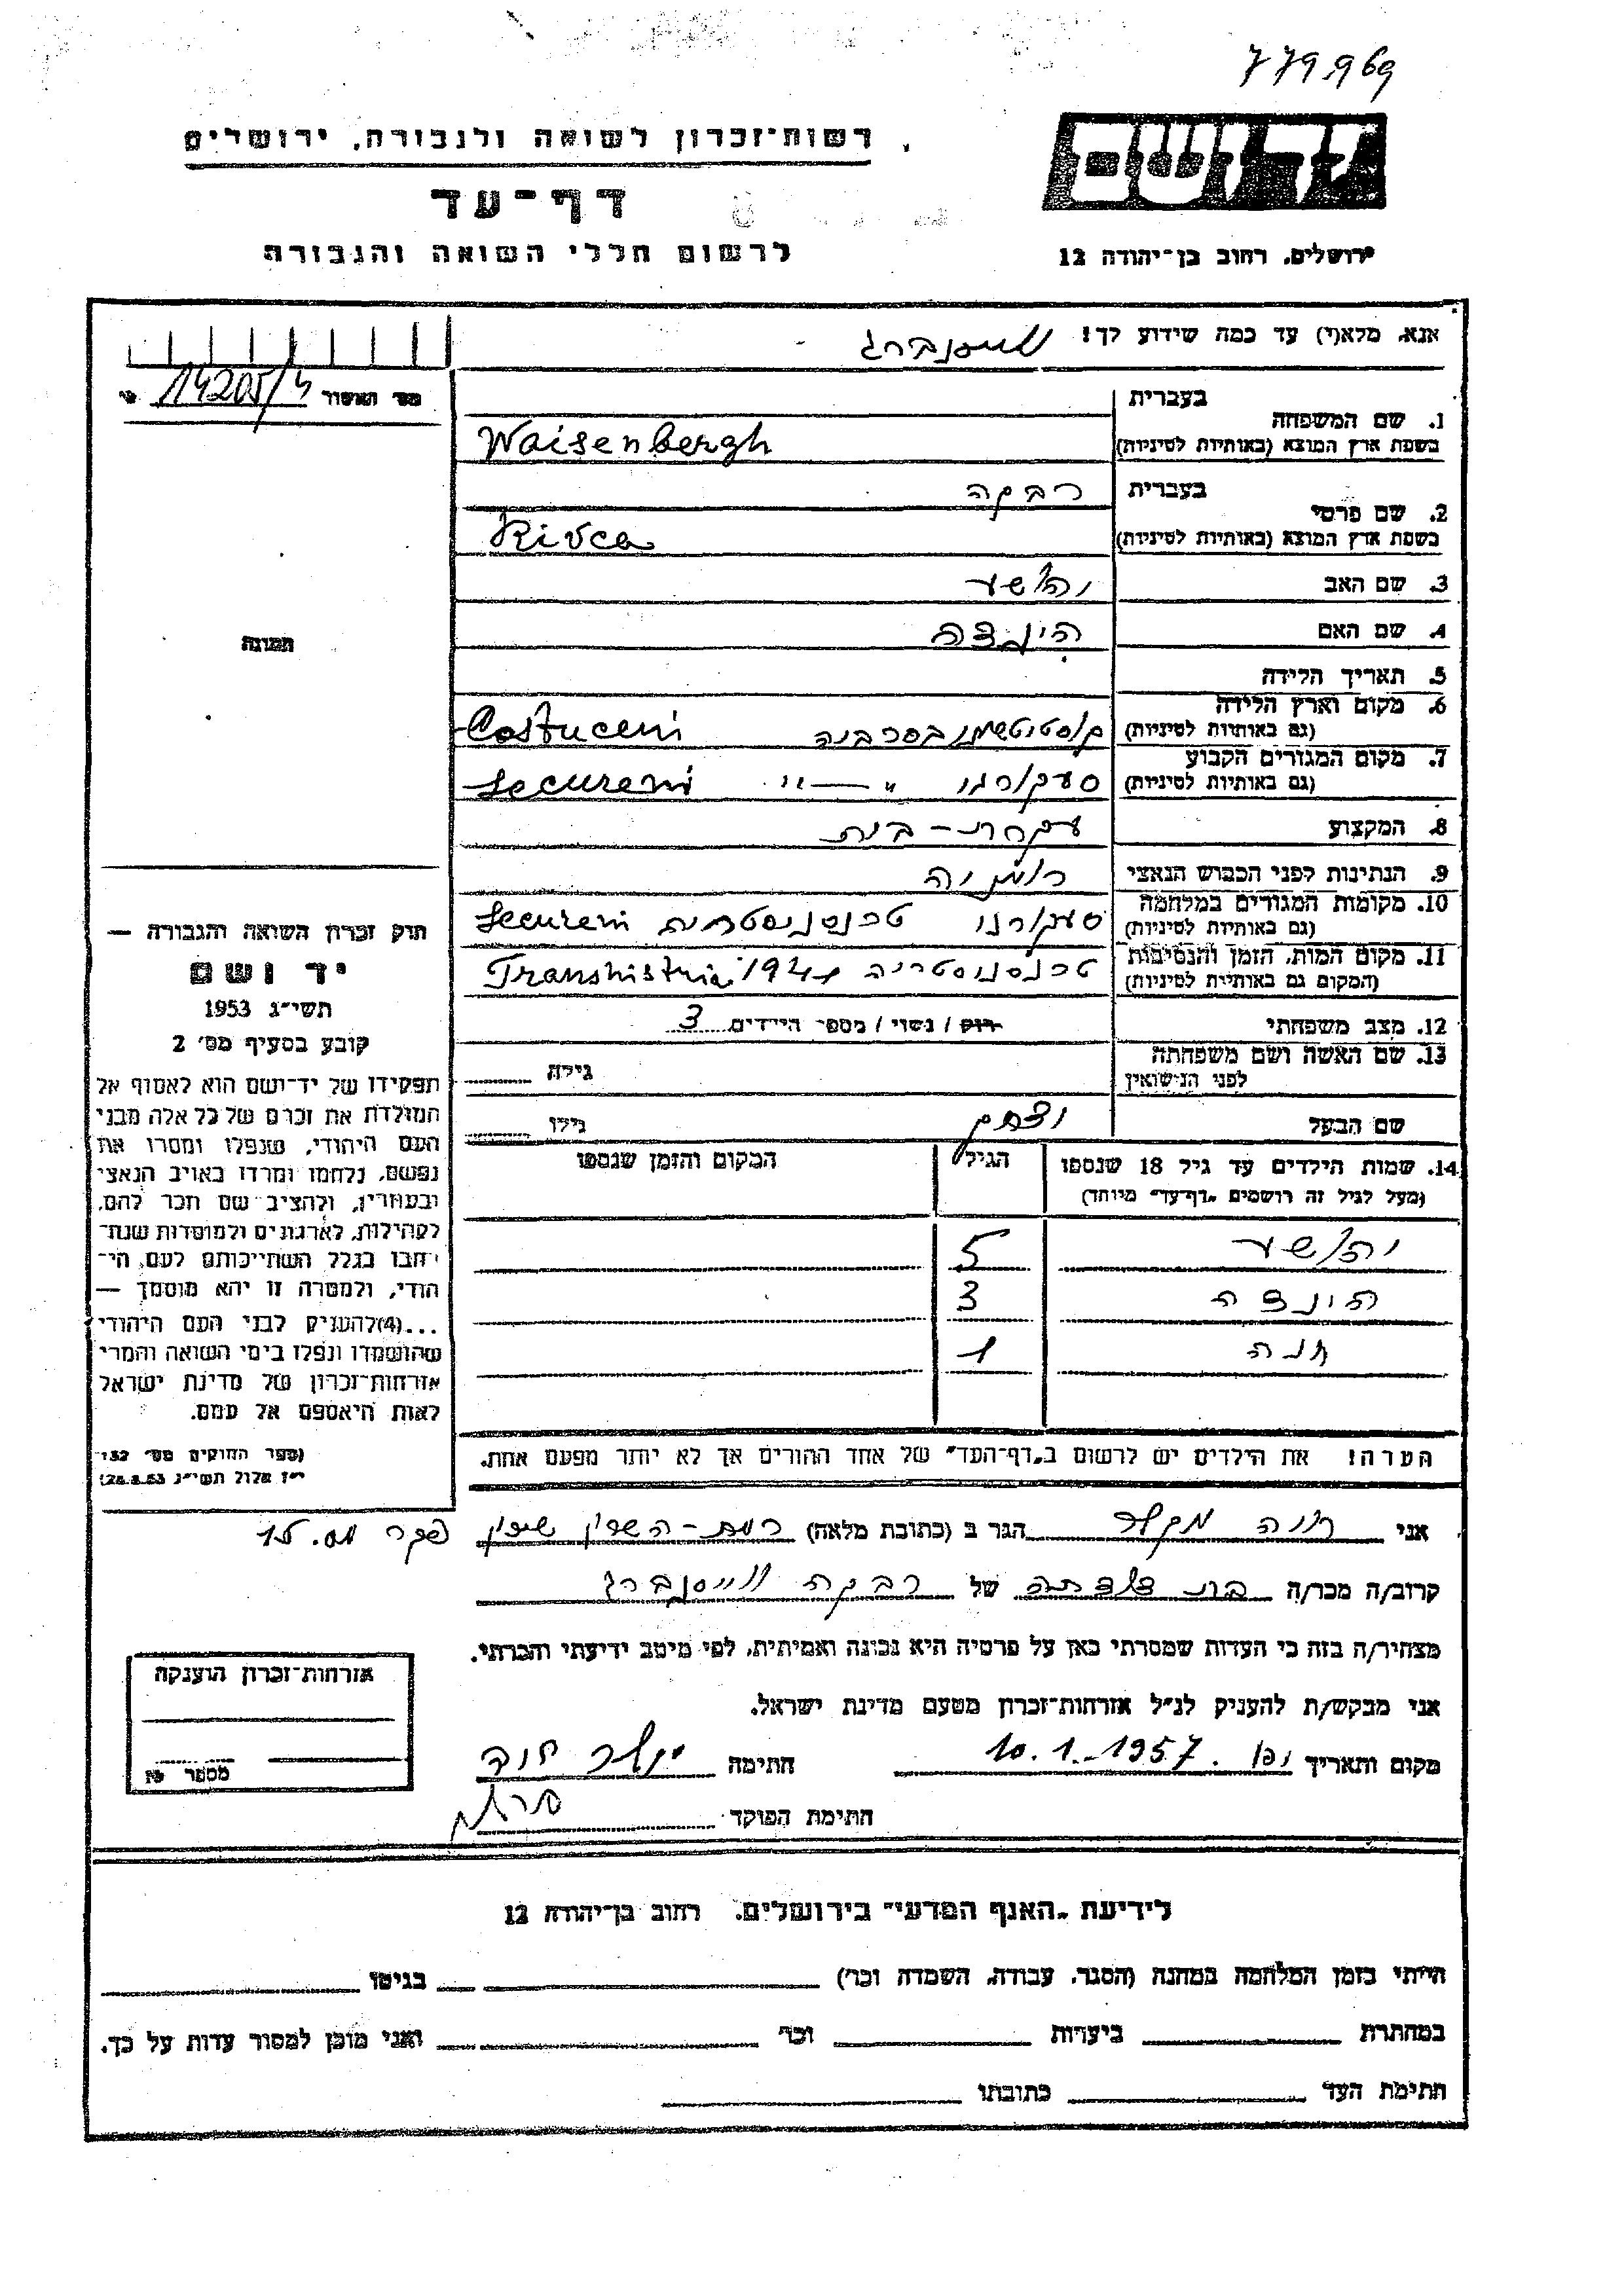 779969
רשות־זכרון לשואה ולגבורה, ירושלים
דף־עד
לרשום חללי השואה והגבורה
יד ושם
ירושלים, רחוב בן־יהודה 12
אנא, מלא(י) עד כמה שידוע לך!
וייסנברג
מס׳ האשור 14205/4
1. שם המשפחה בעברית
בשפת ארץ המוצא (באותיות לטיניות) Waisenbergh
2. שם פרטי בעברית רבקה
בשפת ארץ המוצא (באותיות לטיניות) Rivca
3. שם האב יהושע
4. שם האם הינדה
5. תאריך הלידה
6. מקום וארץ הלידה
(גם באותיות לטיניות) בסרביה Costuceni
7. מקום המגורים הקבוע
(גם באותיות לטיניות) סעקורני " — " Secureni
8. המקצוע עקרת-בית
9. הנתינות לפני הכבוש הנאצי רומניה
10. מקומות המגורים במלחמה
(גם באותיות לטיניות) סעקורני טרנסניסטריה Secureni
11. מקום המות, הזמן והנסיבות
(המקום גם באותיות לטיניות) טרנסניסטריה Transnistria 1941
12. מצב משפחתי רווק / נשוי / מספר הילדים 3
13. שם האשה ושם משפחתה
לפני הנישואין גילה
שם הבעל גילו
14. שמות הילדים עד גיל 18 שנספו הגיל המקום והזמן שנספו
(מעל לגיל זה רושמים „דף־עד" מיוחד)
יהושע 5
הינדה 3
חנה 1
הערה! את הילדים יש לרשום ב„דף־העד" של אחד ההורים אך לא יותר מפעם אחת.
תמונה
חוק זכרון השואה והגבורה —
יד ושם
תשי״ג 1953
קובע בסעיף מס׳ 2
תפקידו של יד־ושם הוא לאסוף אל
המולדת את זכרם של כל אלה מבני
העם היהודי, שנפלו ומסרו את
נפשם, נלחמו ומרדו באויב הנאצי
ובעוזריו, ולהציב שם וזכר להם,
לקהילות, לארגונים ולמוסדות שנח־
רבו בגלל השתייכותם לעם הי־
הודי, ולמטרה זו יהא מוסמך —
...(4)להעניק לבני העם היהודי
שהושמדו ונפלו בימי השואה והמרי
אזרחות־זכרון של מדינת ישראל
לאות היאספם אל עמם.
(ספר החוקים מס׳ 132
י״ז אלול תשי״ג 28.8.53)
אני חוה הגר ב (כתובת מלאה) רמת-השרון שיכון
קרוב/ה מכר/ה של רבקה ווייסנברג
מצהיר/ה בזה כי העדות שמסרתי כאן על פרטיה היא נכונה ואמיתית, לפי מיטב ידיעתי והכרתי.
אני מבקש/ת להעניק לנ״ל אזרחות־זכרון מטעם מדינת ישראל.
מקום ותאריך 10.1.1957 חתימה
חתימת הפוקד
אזרחות־זכרון הוענקה
מספר
לידיעת „האגף המדעי" בירושלים, רחוב בן־יהודה 12
הייתי בזמן המלחמה במחנה (הסגר, עבודה, השמדה וכו׳) בגיטו
במחתרת ביערות וכו׳ ואני מוכן למסור עדות על כך.
חתימת העד כתובתו